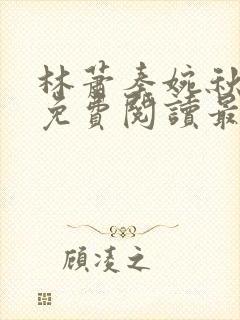 林萧秦婉秋
免費閱讀最
顾凌之